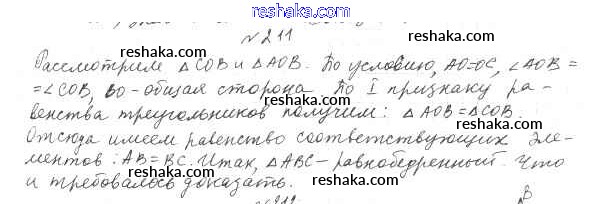 reshaka.com
№211
reshaka.com reshaka.com
Рассмотрим △COB и △AOB. По условию, AO=OC, ∠AOB =
=∠COB, BO-общая сторона. По I признаку ра-
reshaka.com reshaka.com
венства треугольников получим: △AOB=△COB.
Отсюда имеем равенство соответствующих эле-
reshaka.com
ментов: AB=BC. Итак, △ABC-равнобедренный. Что
и требовалось доказать.
reshaka.com reshaka.com
B